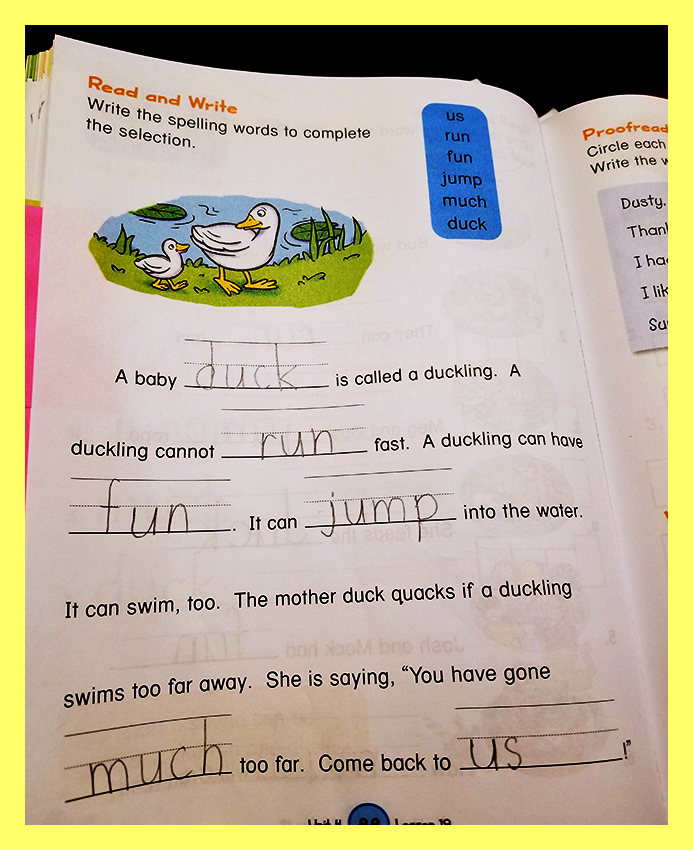 Read and Write
Write the spelling words to complete
the selection.
us
run
fun
jump
much
duck
A baby duck is called a duckling. A
duckling cannot run fast. A duckling can have
fun. It can jump into the water.
It can swim, too. The mother duck quacks if a duckling
swims too far away. She is saying, “You have gone
much too far. Come back to us!”
Proofread
Circle each
Write the
Dusty.
I
I